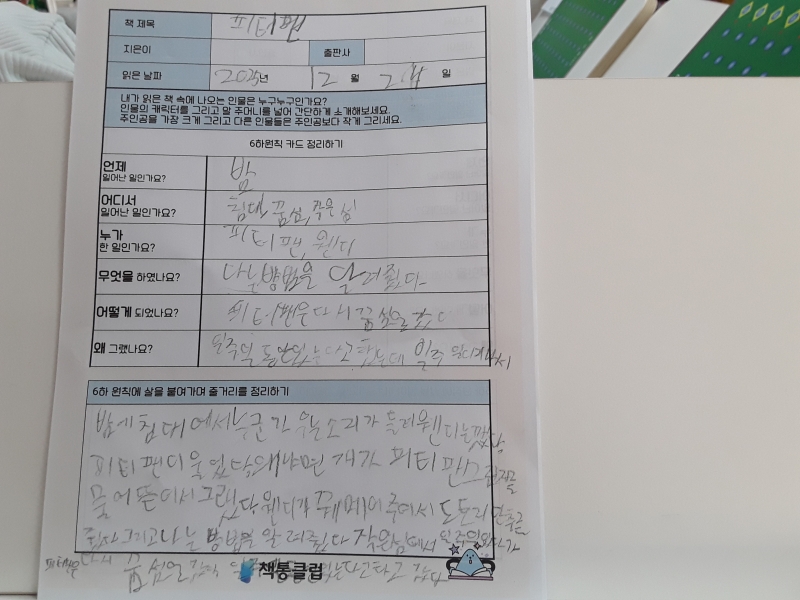 책 제목 피터팬
지은이 출판사
읽은 날짜 2025년 12월 2 일
내가 읽은 책 속에 나오는 인물은 누구누구인가요?
인물의 캐릭터를 그리고 말 주머니를 넣어 간단하게 소개해보세요.
주인공을 가장 크게 그리고 다른 인물들은 주인공보다 작게 그리세요.
6하원칙 카드 정리하기
언제 밤
일어난 일인가요?
어디서 침대, 꿈섬, 작은 섬
일어난 일인가요?
누가 피터팬, 웬디
한 일인가요?
무엇을 하였나요? 나는방법을 알려줬다
어떻게 되었나요? 피터팬은다시 꿈섬을 갔다
왜 그랬나요? 일주일 동안있는다고 일주일
6하 원칙에 살을 붙여가며 줄거리를 정리하기
밤에 침대에서누군가 우는소리가 들려웬디는깼다
피터팬이 울었다왜냐면 개가 피터판그림자를
물어뜯어서그랬다웬디가 꿰메어주어서 도토리단추를
줬다그리고나는 방법을 알려줬다 작은섬에서
피터팬은 다시 꿈섬을 갔다
책통클럽